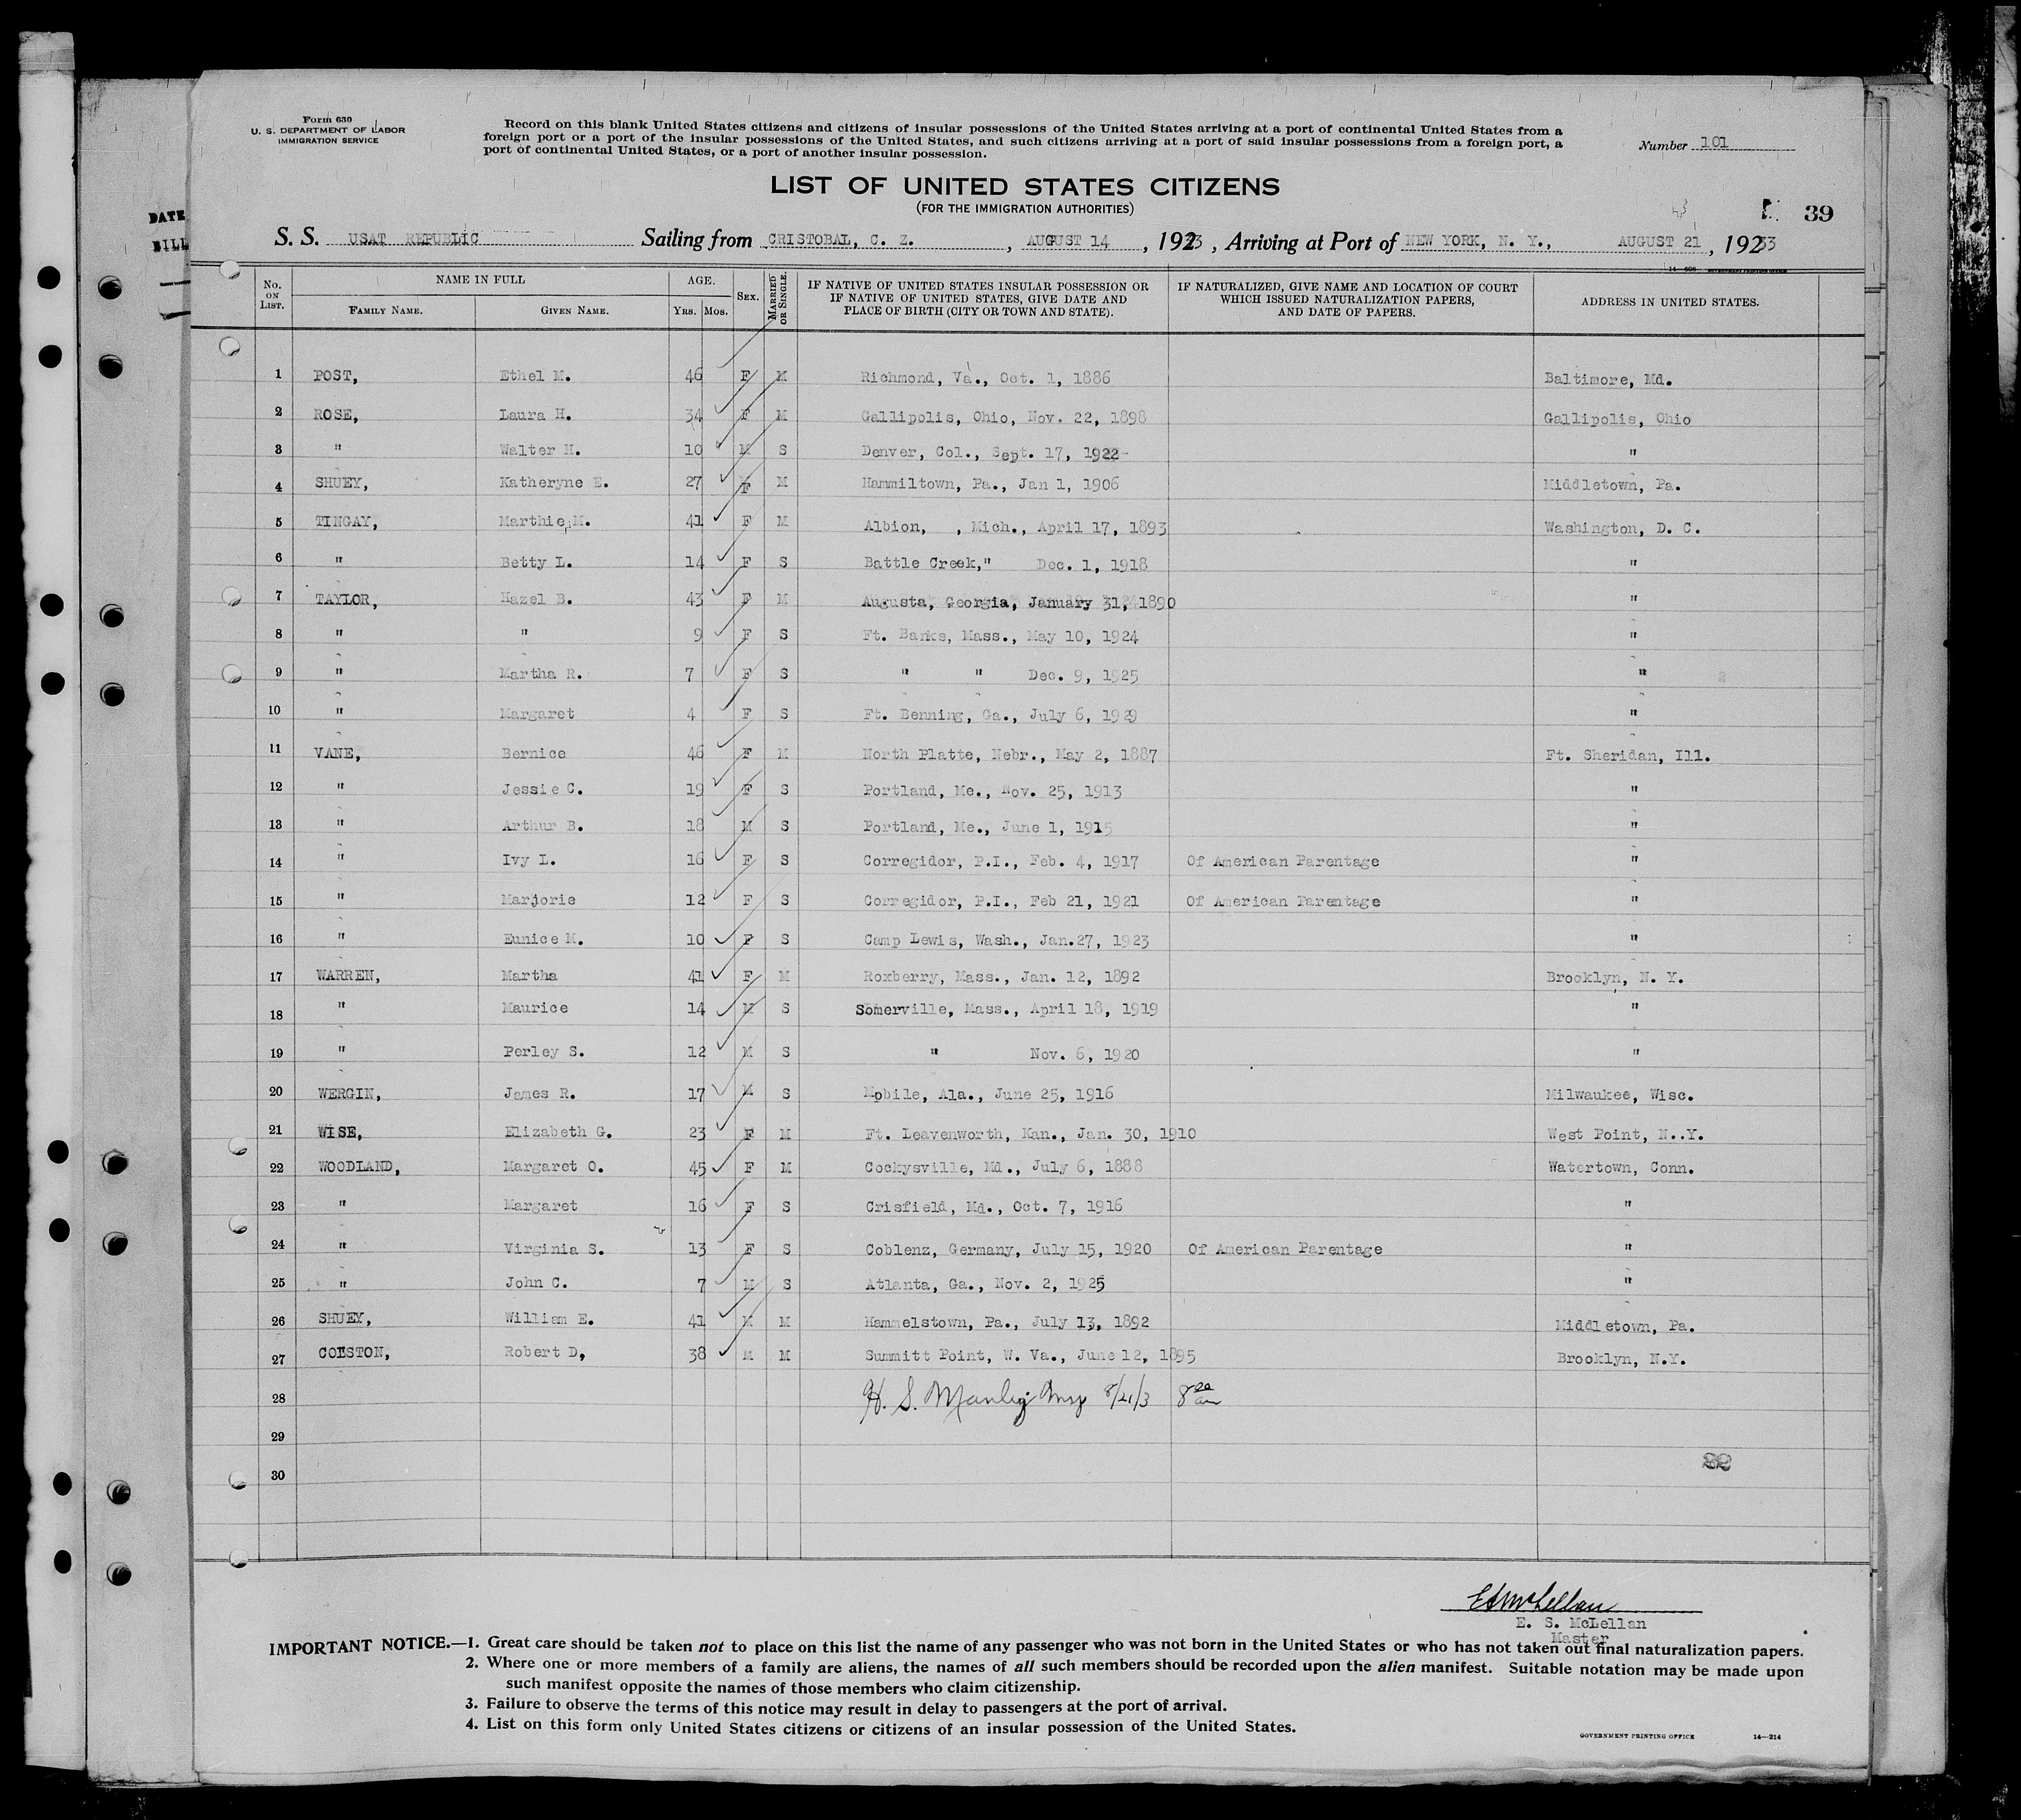 Form 630
U. S. DEPARTMENT OF LABOR
IMMIGRATION SERVICE
Record on this blank United States citizens and citizens of insular possessions of the United States arriving at a port of continental United States from a
foreign port or a port of the insular possessions of the United States, and such citizens arriving at a port of said insular possessions from a foreign port, a
port of continental United States, or a port of another insular possession.
Number 101
LIST OF UNITED STATES CITIZENS
(FOR THE IMMIGRATION AUTHORITIES)
39
DATE
BILL
S. S. USAT REPUBLIC Sailing from CRISTOBAL, C. Z. , AUGUST 14 , 1923 , Arriving at Port of NEW YORK, N. Y., AUGUST 21 , 19233
No. ON LIST. NAME IN FULL FAMILY NAME. GIVEN NAME. AGE. YRS. MOS. SEX. MARRIED OR SINGLE. IF NATIVE OF UNITED STATES INSULAR POSSESSION OR IF NATIVE OF UNITED STATES, GIVE DATE AND PLACE OF BIRTH (CITY OR TOWN AND STATE). IF NATURALIZED, GIVE NAME AND LOCATION OF COURT WHICH ISSUED NATURALIZATION PAPERS, AND DATE OF PAPERS. ADDRESS IN UNITED STATES.
1 POST, Ethel M. 46 F M Richmond, Va., Oct. 1, 1886 Baltimore, Md.
2 ROSE, Laura H. 34 F M Gallipolis, Ohio, Nov. 22, 1898 Gallipolis, Ohio
3 " Walter H. 10 M S Denver, Col., Sept. 17, 1922- "
4 SHUEY, Katheryne E. 27 F M Hammiltown, Pa., Jan 1, 1906 Middletown, Pa.
5 TINGAY, Marthie M. 41 F M Albion, , Mich., April 17, 1893 Washington, D. C.
6 " Betty L. 14 F S Battle Creek," Dec. 1, 1918 "
7 TAYLOR, Hazel B. 43 F M Augusta, Georgia, January 31, 1890 "
8 " " 9 F S Ft. Banks, Mass., May 10, 1924 "
9 " Martha R. 7 F S " " Dec. 9, 1925 "
10 " Margaret 4 F S Ft. Benning, Ga., July 6, 1929 "
11 VANE, Bernice 46 F M North Platte, Nebr., May 2, 1887 Ft. Sheridan, Ill.
12 " Jessie C. 19 F S Portland, Me., Nov. 25, 1913 "
13 " Arthur B. 18 M S Portland, Me., June 1, 1915 "
14 " Ivy L. 16 F S Corregidor, P.I., Feb. 4, 1917 Of American Parentage "
15 " Marjorie 12 F S Corregidor, P.I., Feb 21, 1921 Of American Parentage "
16 " Eunice M. 10 F S Camp Lewis, Wash., Jan.27, 1923 "
17 WARREN, Martha 41 F M Roxberry, Mass., Jan. 12, 1892 Brooklyn, N. Y.
18 " Maurice 14 M S Somerville, Mass., April 18, 1919 "
19 " Perley S. 12 M S " Nov. 6, 1920 "
20 WERGIN, James R. 17 M S Mobile, Ala., June 25, 1916 Milwaukee, Wisc.
21 WISE, Elizabeth G. 23 F M Ft. Leavenworth, Kan., Jan. 30, 1910 West Point, N..Y.
22 WOODLAND, Margaret O. 45 F M Cockysville, Md., July 6, 1888 Watertown, Conn.
23 " Margaret 16 F S Crisfield, Md., Oct. 7, 1916 "
24 " Virginia S. 13 F S Coblenz, Germany, July 15, 1920 Of American Parentage "
25 " John C. 7 M S Atlanta, Ga., Nov. 2, 1925 "
26 SHUEY, William E. 41 M M Hammelstown, Pa., July 13, 1892 Middletown, Pa.
27 COESTON, Robert D, 38 M M Summitt Point, W. Va., June 12, 1895 Brooklyn, N.Y.
28 H. S. Manley 8/21/3 8
29
30
E. S. McLellan
E. S. McLellan
Master
IMPORTANT NOTICE.—1. Great care should be taken not to place on this list the name of any passenger who was not born in the United States or who has not taken out final naturalization papers.
2. Where one or more members of a family are aliens, the names of all such members should be recorded upon the alien manifest. Suitable notation may be made upon
such manifest opposite the names of those members who claim citizenship.
3. Failure to observe the terms of this notice may result in delay to passengers at the port of arrival.
4. List on this form only United States citizens or citizens of an insular possession of the United States.
GOVERNMENT PRINTING OFFICE 14—214